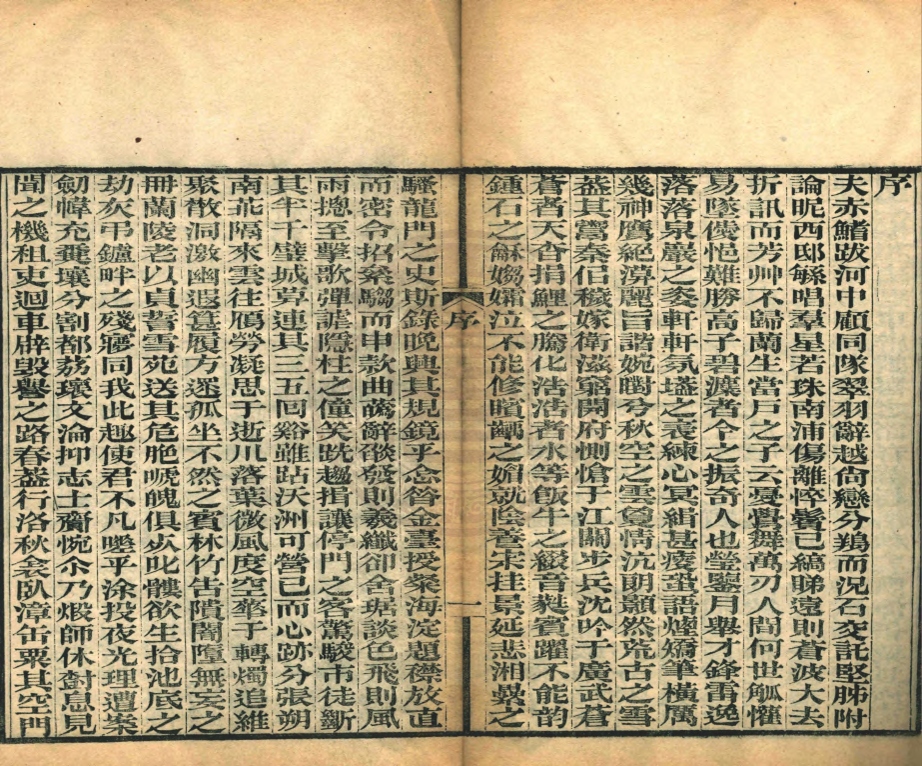 序
夫赤鰭跋河中顧同隊翠羽辭越尚戀分鷄而況石交託堅肺附
論昵西邸緜唱羣星若珠南浦傷離悴鬢已縞睇遠則蒼波大去
折訊而芳艸不歸蘭生當戶之子云憂鸞舞萬刃人間何世觚懽
易墜儳悒難勝高子碧湄者今之振奇人也瑩鑒月舉才鋒雷逸
落落泉巖之姿軒軒氛壒之表練心冥緝甚疲蛩語爗矯筆橫厲
幾神鷹絕淖麗旨諧婉嚉兮秋空之雲夐情沆朗顥然荒古之雪
葢其嘗秦佀穢嫁衞滋窮開府惻愴于江關步兵沈吟于廣武蒼
蒼者天杳捐鯉之騰化浩浩者水等飯牛之綴音蕤賓躍不能韵
鍾石之龢媰孀泣不能修矉齲之媚就陰養宋挂景延悲湘纍之
序
一
騷龍門之史斯錄晚興其規鏡乎念昝金臺授粲海淀題襟放直
而密令招棨騶而申款曲蘅辭欲發則羲纖卻舍琚談色飛則風
雨摠至擊歌彈謔隱柱之僮笑跣趨揖讓停門之客驚駿市徒斷
其半千璧城萛連其三五回谿雖跕沃洲可營已而心跡分張朔
南茈隔來雲往鴈勞凝思于逝川落葉微風度空檠于轉燭追維
聚散洞激幽遐簋履方遂孤坐不然之賓林竹告隤闇墮無妄之
冊蘭陵老以貞誓雪苑送其危脃唬魄俱叱髏欲生拾池底之
劫灰弔鑪畔之殘寱同我此趣使君不凡嚂乎涂投夜光理遭桉
劒幃充糞壤分割都荔瓌文淪抑志士齎惋尒乃煅師休對息見
聞之機租吏迴車辟毀譽之路春葢行洛秋衾臥漳缶粟其空門